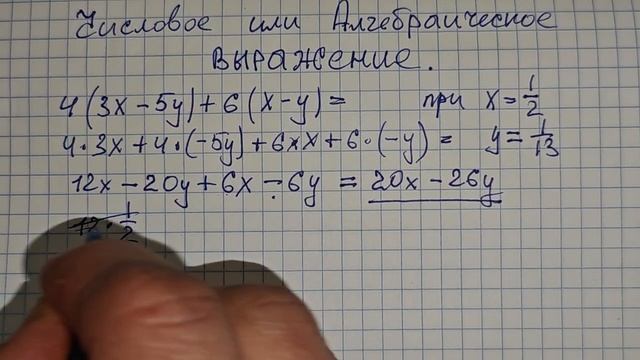 Числовое или Алгебраическое
выражение.
4(3x-5y)+6(x-y)= при x=1/2
4·3x+4·(-5y)+6xx+6·(-y)= y=1/13
12x-20y+6x-6y=20x-26y
12·1/2